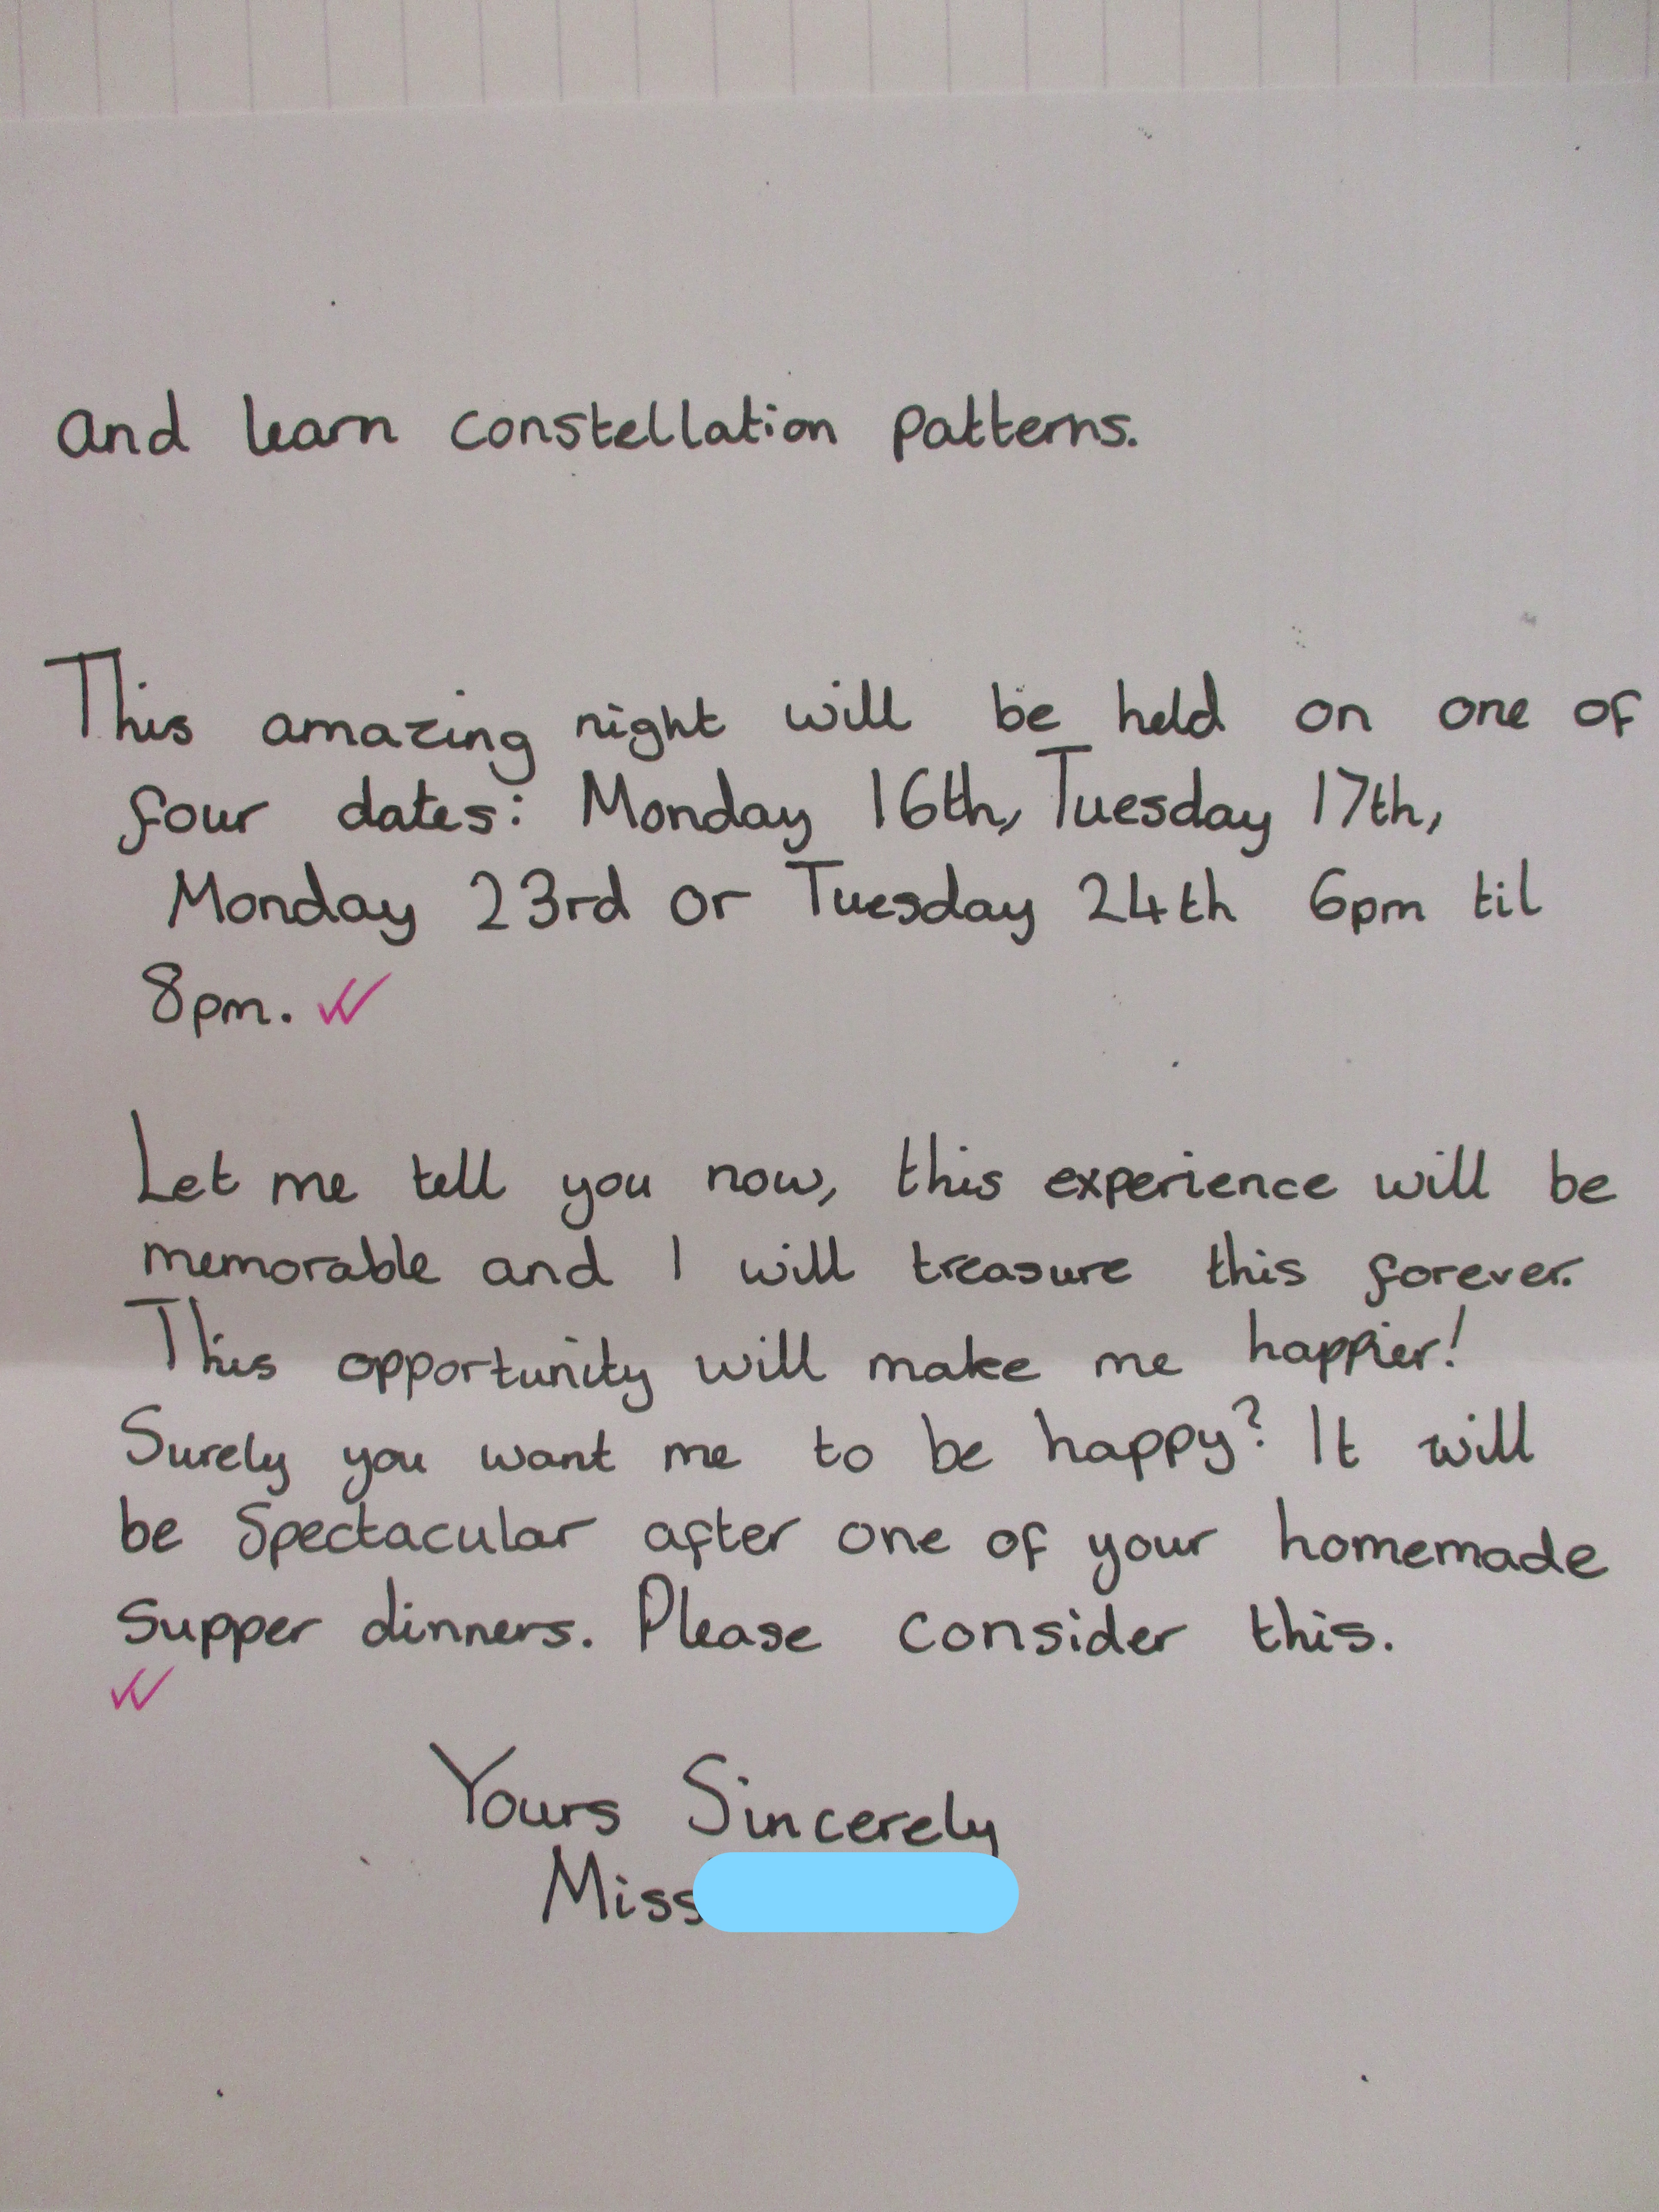 and learn constellation patterns.
This amazing night will be held on one of
four dates: Monday 16th, Tuesday 17th,
Monday 23rd or Tuesday 24th 6pm til
8pm.
Let me tell you now, this experience will be
memorable and I will treasure this forever.
This opportunity will make me happier!
Surely you want me to be happy? It will
be Spectacular after one of your homemade
Supper dinners. Please consider this.
Yours Sincerely
Miss